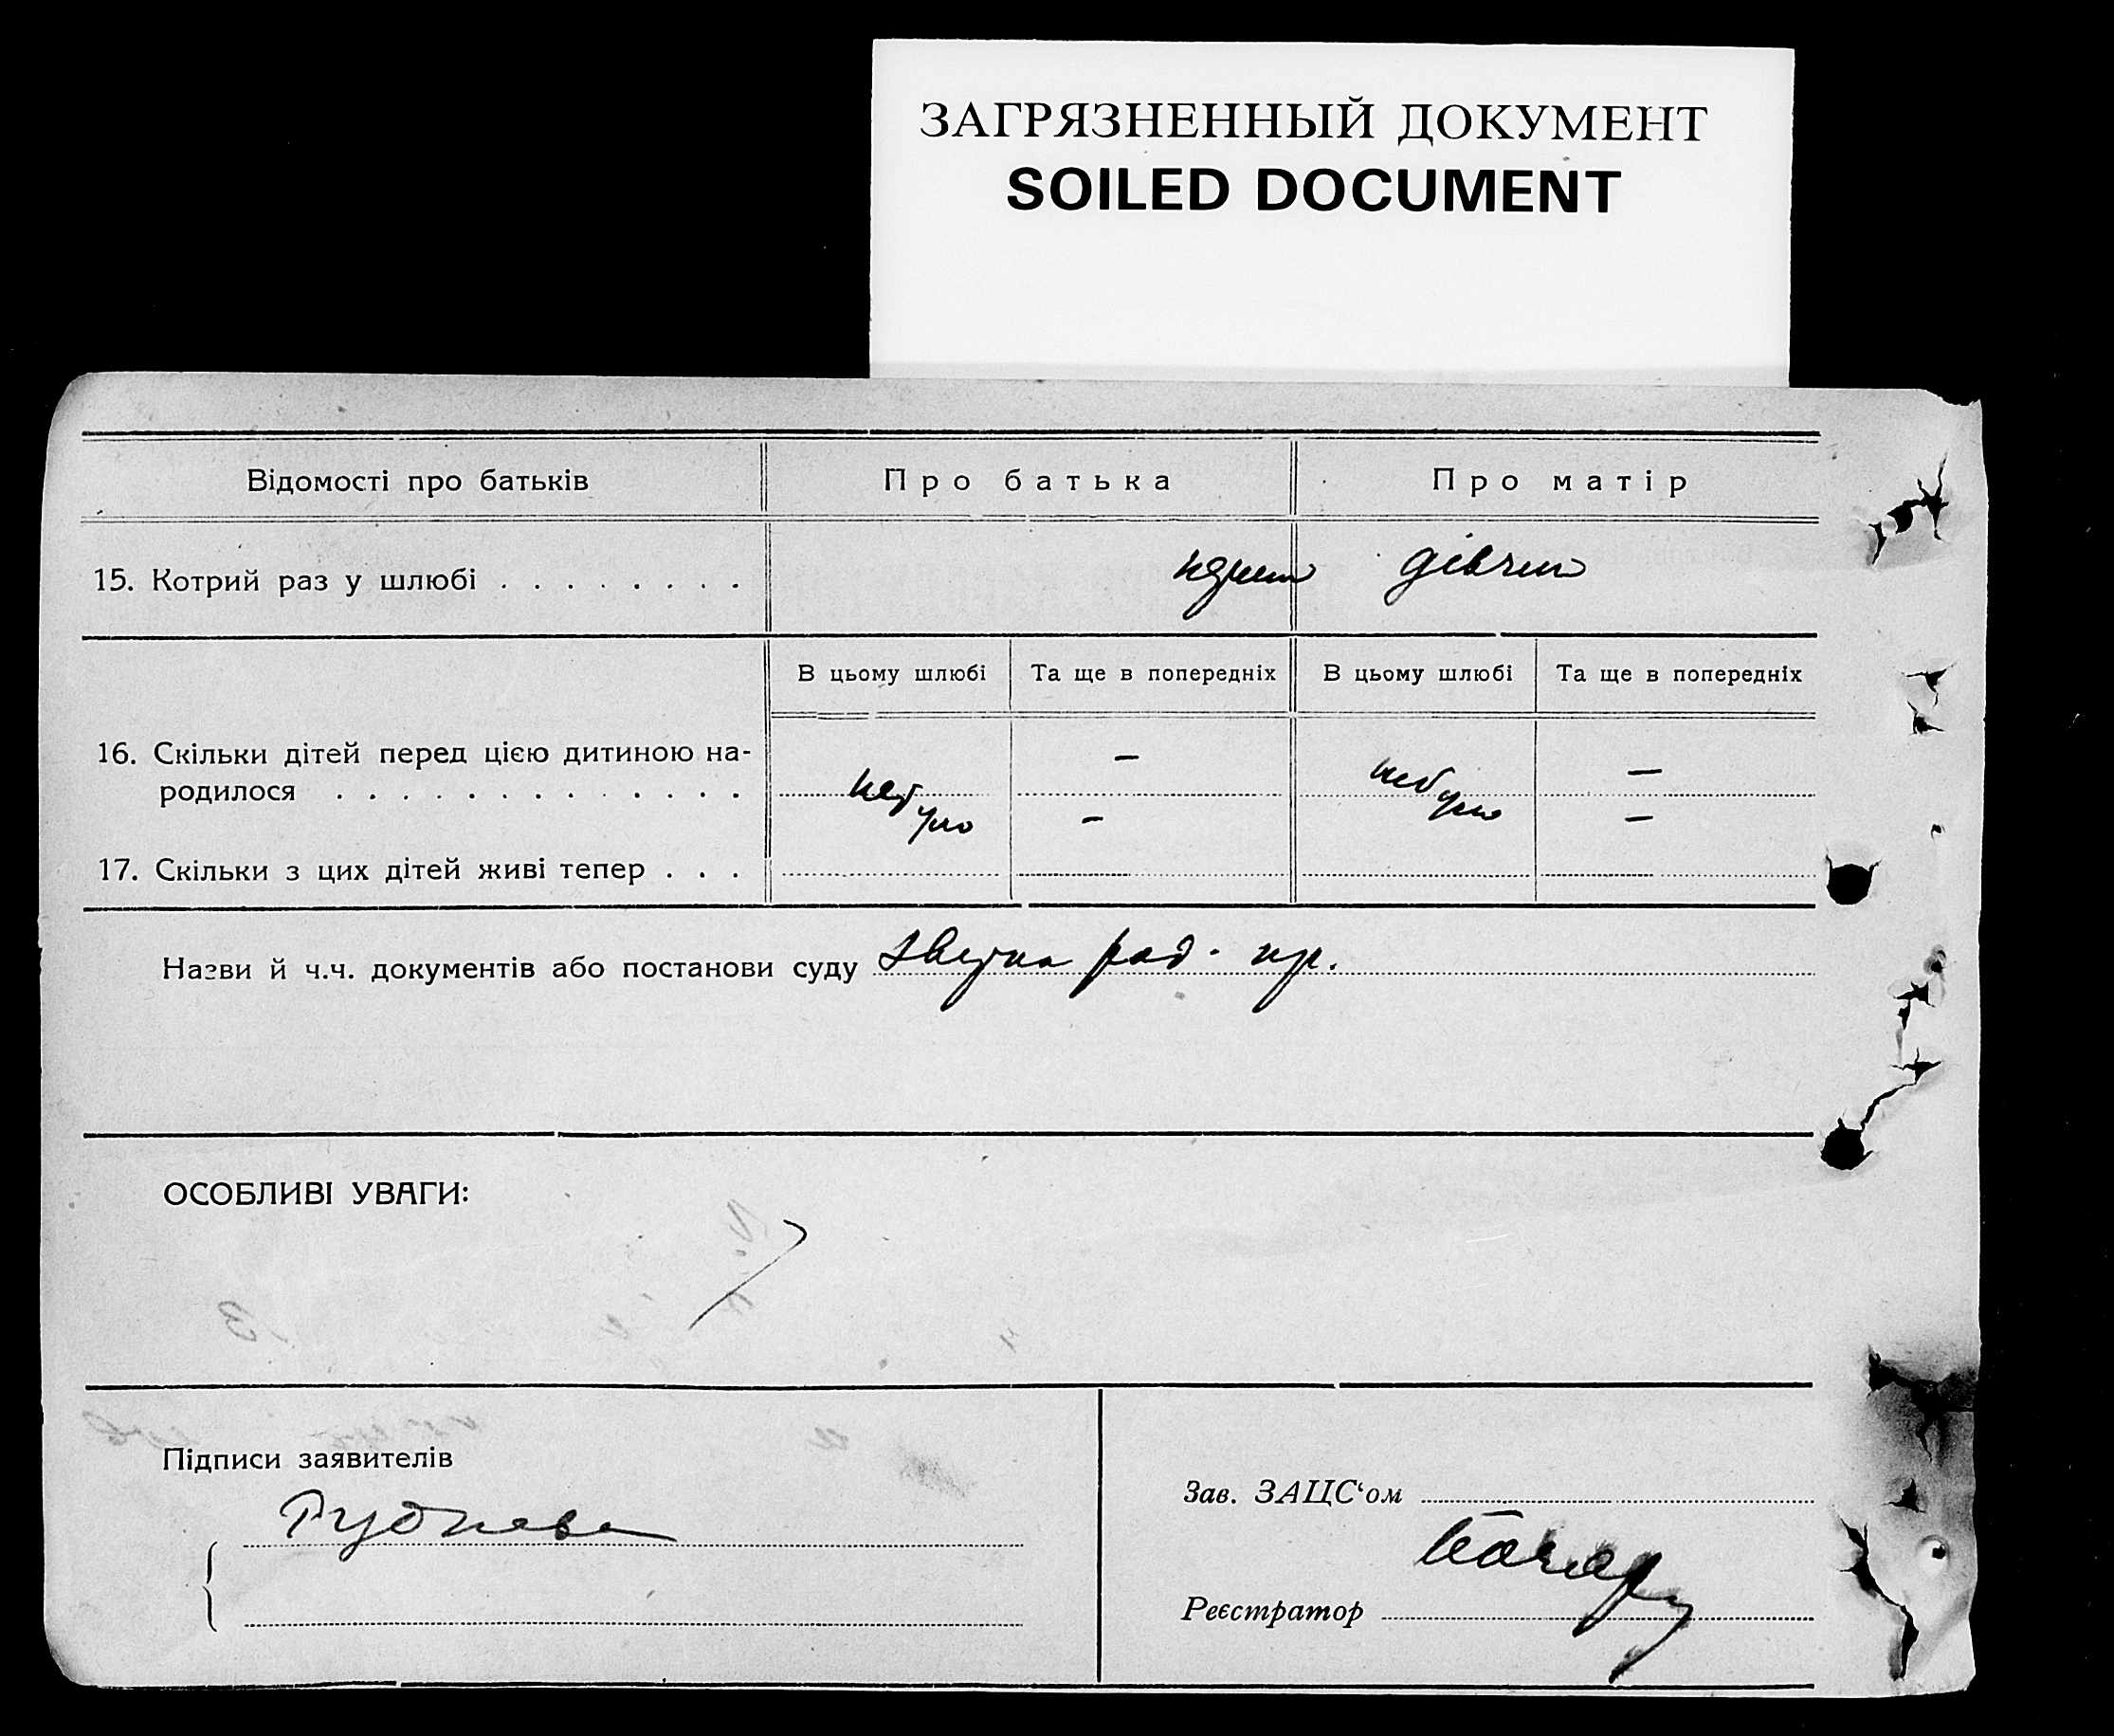 ЗАГРЯЗНЕННЫЙ ДОКУМЕНТ
SOILED DOCUMENT
Відомості про батьків
Про батька
Про матір
15. Котрий раз у шлюбі . . . . . . . .
В цьому шлюбі
Та ще в попередніх
В цьому шлюбі
Та ще в попередніх
16. Скільки дітей перед цією дитиною на-
родилося . . . . . . . . . . . . .
— —
небуло небуло
— —
17. Скільки з цих дітей живі тепер . . .
Назви й ч.ч. документів або постанови суду рад.
ОСОБЛИВІ УВАГИ:
Підписи заявителів
Зав. ЗАЦС‘ом
Реєстратор